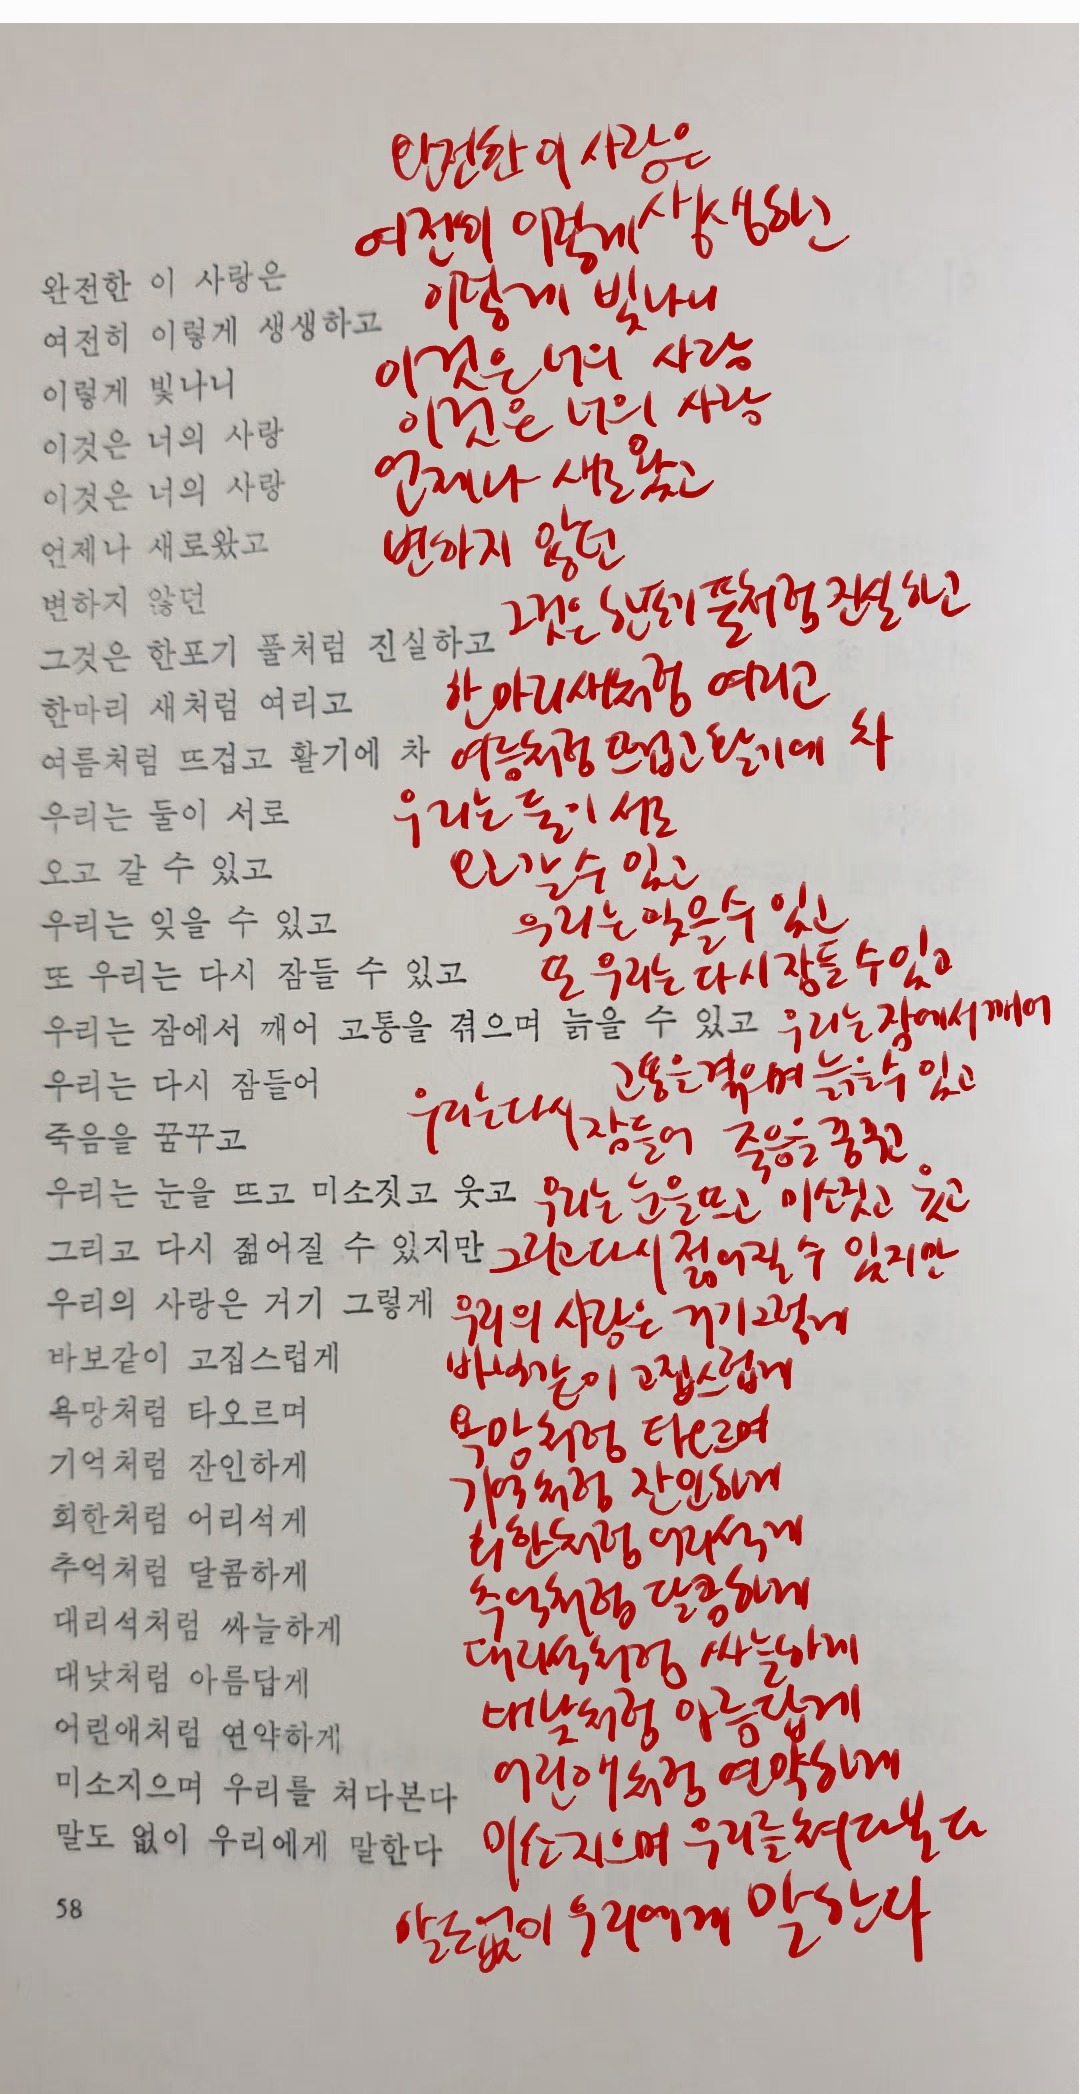 완전한 이 사랑은
여전히 이렇게 생생하고
이렇게 빛나니
이것은 너의 사랑
이것은 너의 사랑
언제나 새로왔고
변하지 않던
그것은 한포기 풀처럼 진실하고
한마리 새처럼 여리고
여름처럼 뜨겁고 활기에 차
우리는 둘이 서로
오고 갈 수 있고
우리는 잊을 수 있고
또 우리는 다시 잠들 수 있고
우리는 잠에서 깨어 고통을 겪으며 늙을 수 있고
우리는 다시 잠들어
죽음을 꿈꾸고
우리는 눈을 뜨고 미소짓고 웃고
그리고 다시 젊어질 수 있지만
우리의 사랑은 거기 그렇게
바보같이 고집스럽게
욕망처럼 타오르며
기억처럼 잔인하게
회한처럼 어리석게
추억처럼 달콤하게
대리석처럼 싸늘하게
대낮처럼 아름답게
어린애처럼 연약하게
미소지으며 우리를 쳐다본다
말도 없이 우리에게 말한다
58
완전한 이 사랑은
여전히 이렇게 생생하고
이렇게 빛나니
이것은 너의 사랑
이것은 너의 사랑
언제나 새로왔고
변하지 않던
그것은 한포기 풀처럼 진실하고
한마리 새처럼 여리고
여름처럼 뜨겁고 활기에 차
우리는 둘이 서로
오고 갈 수 있고
우리는 잊을 수 있고
또 우리는 다시 잠들 수 있고
우리는 잠에서 깨어
고통을 겪으며 늙을 수 있고
우리는 다시 잠들어 죽음을 꿈꾸고
우리는 눈을 뜨고 미소짓고 웃고
그리고 다시 젊어질 수 있지만
우리의 사랑은 거기 그렇게
바보같이 고집스럽게
욕망처럼 타오르며
기억처럼 잔인하게
회한처럼 어리석게
추억처럼 달콤하게
대리석처럼 싸늘하게
대낮처럼 아름답게
어린애처럼 연약하게
미소지으며 우리를 쳐다본다
말도 없이 우리에게 말한다